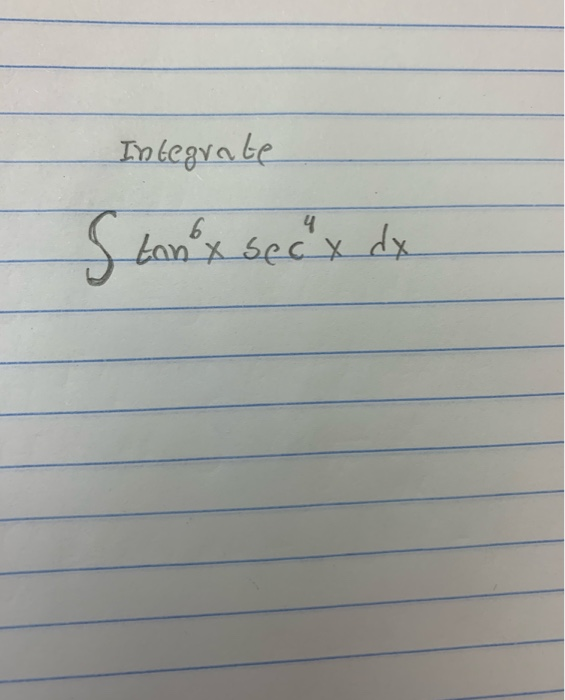 Integrate
∫ tan⁶x sec⁴x dx